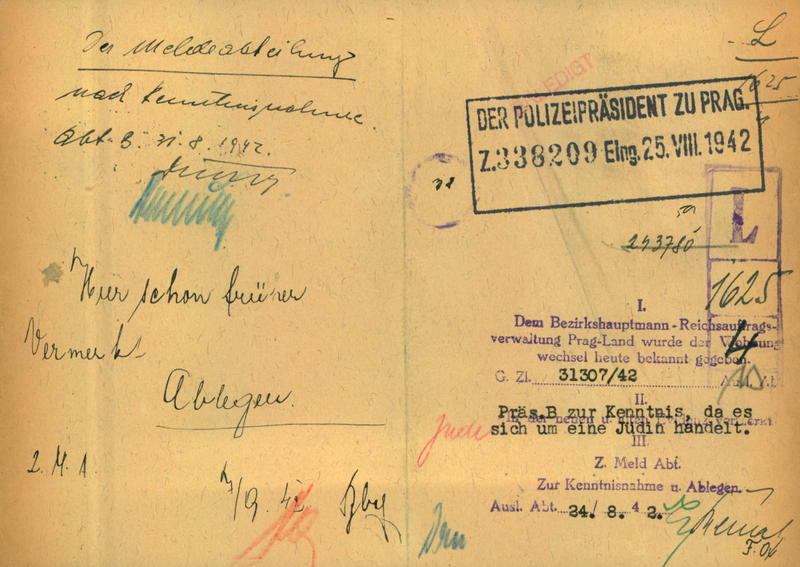 Der Meldeabteilung
nach Kenntnisnahme.
Abt. B. 31.8.1942.
Hier schon früher
Vermerk
Ablegen.
2. M. A.
/9. 42
L
1625
ERLEDIGT
DER POLIZEIPRÄSIDENT ZU PRAG.
Z. 338209 Eing. 25. VIII. 1942
243780
L
1625
4
10
I.
Dem Bezirkshauptmann - Reichsauftrags-
verwaltung Prag-Land wurde der Wohnung
wechsel heute bekannt gegeben.
G. Zl. 31307/42
II.
Präs.B zur Kenntnis, da es
sich um eine Jüdin handelt.
Jude
III.
Z. Meld Abt.
Zur Kenntnisnahme u. Ablegen.
Ausl. Abt. 24./8. 42.